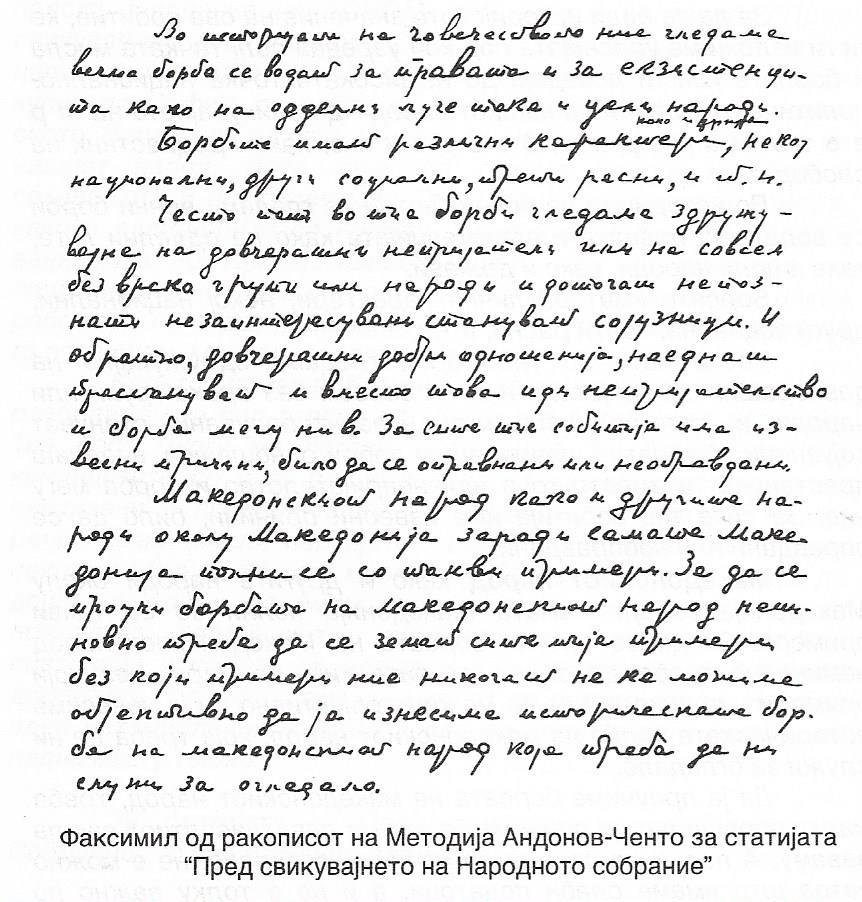 Во историјата на човечеството ние гледаме
вечна борба се водат за правата и за екзистенци-
та како на одделни луѓе така и цели народи.
како и други
Борбите имат различни карактери, некој
национални, други социални, трети расни, и т. н.
Често пат во тие борби гледаме здружу-
вајне на довчерашни непријатели или на совсем
без врска групи или народи и дотогаш непоз-
нати незаинтересувани стануват сојузници. И
обратно, довчерашни добри одношенија, наеднаш
престануват и вместо това иди непријателство
и борба меѓу нив. За сите тие событија има из-
весни причини, било да се оправдани или необравдани.
Македонскиот народ како и другите на-
роди околу Македонија заради самата Маке-
донија полни се со такви примери. За да се
проучи борбата на македонскиот народ неми-
новно треба да се земат сите тија примери
без који примери ние никогаш не ке можиме
објективно да ја изнесиме историческата бор-
ба на македонскиот народ која треба да ни
служи за огледало.
Факсимил од ракописот на Методија Андонов-Ченто за статијата
“Пред свикувајнето на Народното собрание”